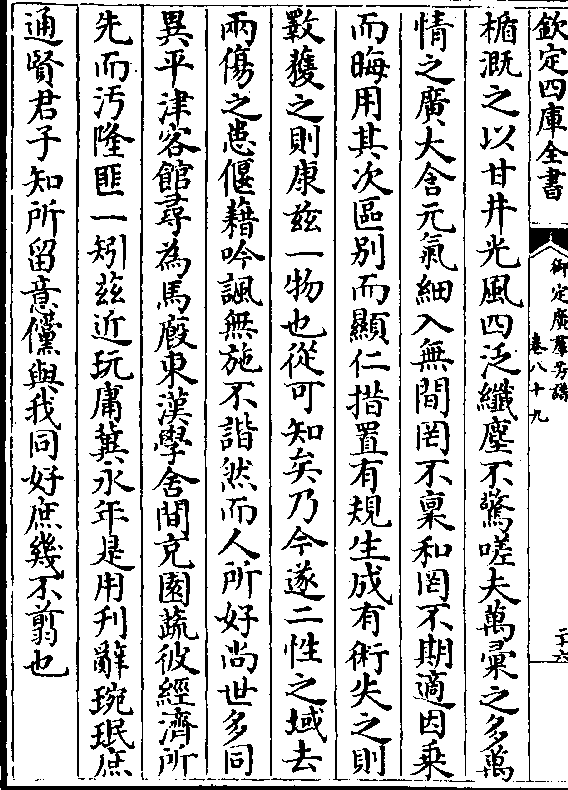 欽定四庫全書
御定廣羣芳譜
卷八十九
二十六
楯溉之以甘井光風四泛纖塵不驚嗟夫萬彙之多萬
情之廣大含元氣細入無間罔不稟和罔不期適因乗
而晦用其次區别而顯仁措置有規生成有術失之則
斁獲之則康兹一物也從可知矣乃今遂二性之域去
兩傷之患偃藉吟諷無施不諧然而人所好尚世多同
異平津客館尋為馬廐東漢學舍間充園蔬彼經濟所
先而汚隆匪一矧兹近玩庸冀永年是用刋辭琬珉庶
通賢君子知所留意儻與我同好庶幾不翦也